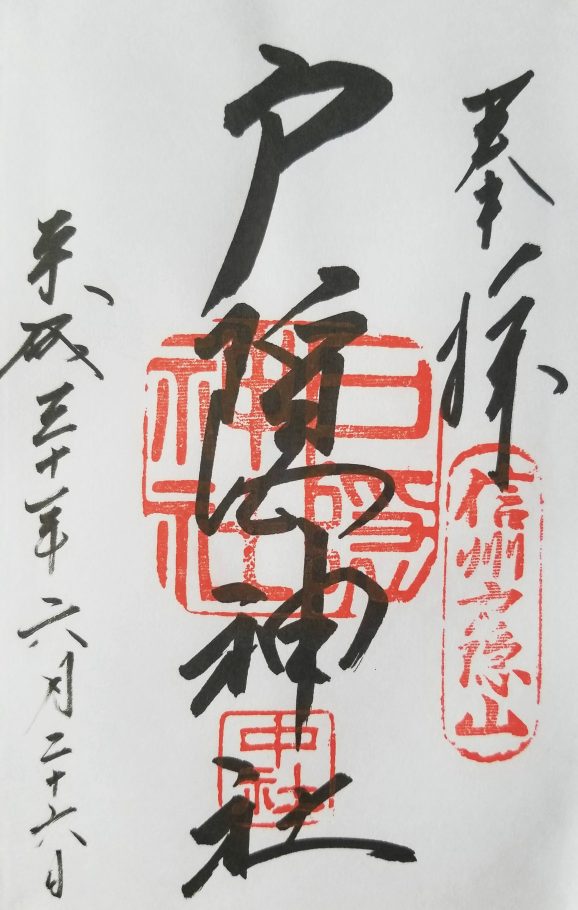 奉拝
信州戸隠山
戸隠神社
戸隠神社
中社
平成三十年六月二十六日